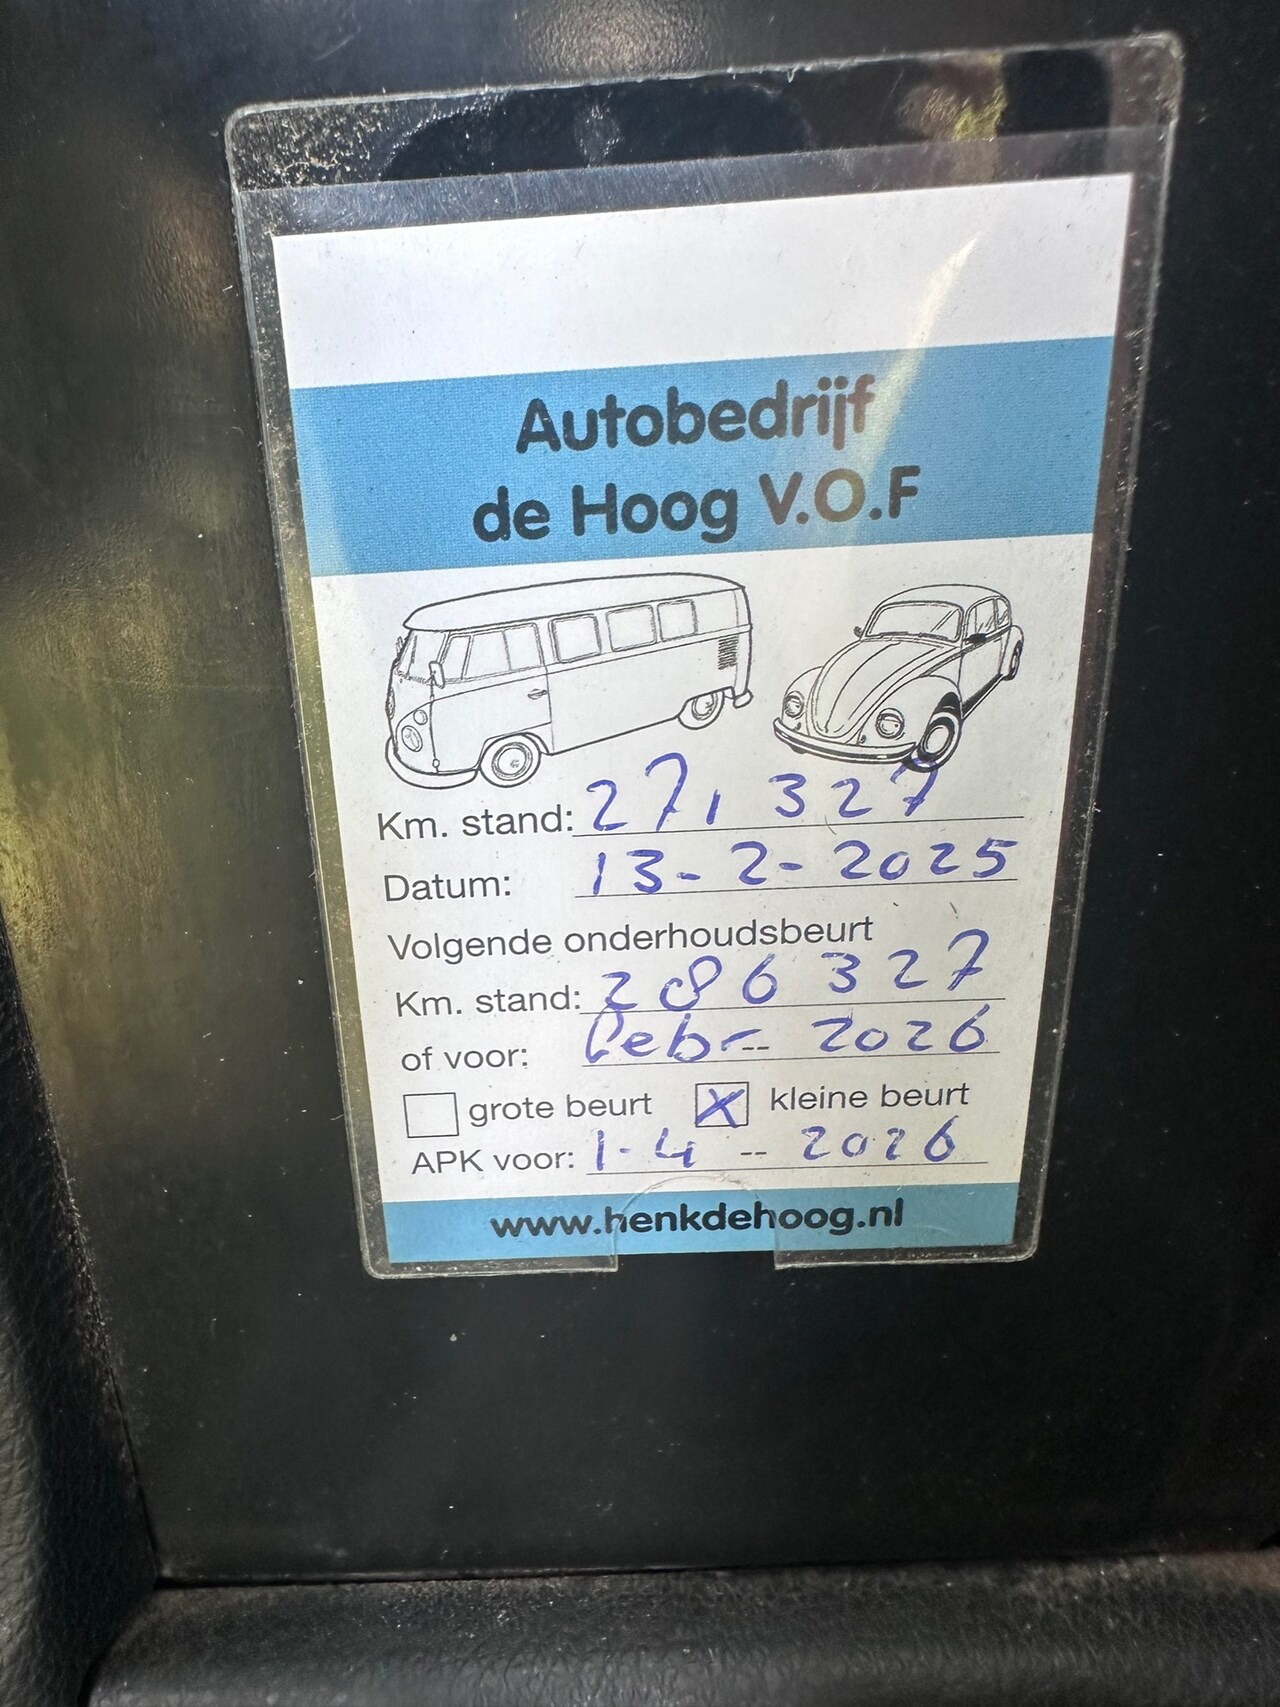 Autobedrijf
de Hoog V.O.F
Km. stand: 271 327
Datum: 13-2-2025
Volgende onderhoudsbeurt
Km. stand: 286 327
of voor: Febr-- 2026
grote beurt X kleine beurt
APK voor: 1-4 -- 2026
www.henkdehoog.nl